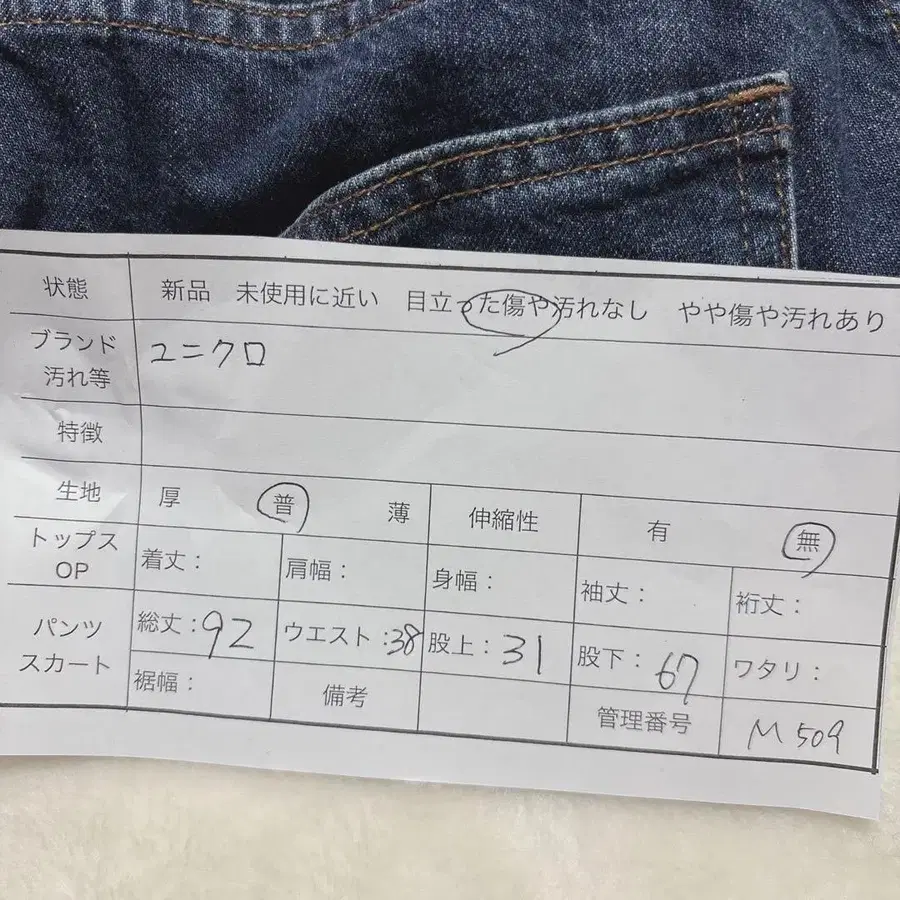 状態 新品 未使用に近い 目立った傷や汚れなし やや傷や汚れあり
ブランド
汚れ等 ユニクロ
特徴
生地 厚 普 薄 伸縮性 有 無
トップス
OP 着丈: 肩幅: 身幅: 袖丈: 裄丈:
パンツ
スカート 総丈:92 ウエスト:38 股上:31 股下:67 ワタリ:
裾幅: 備考 管理番号 M509